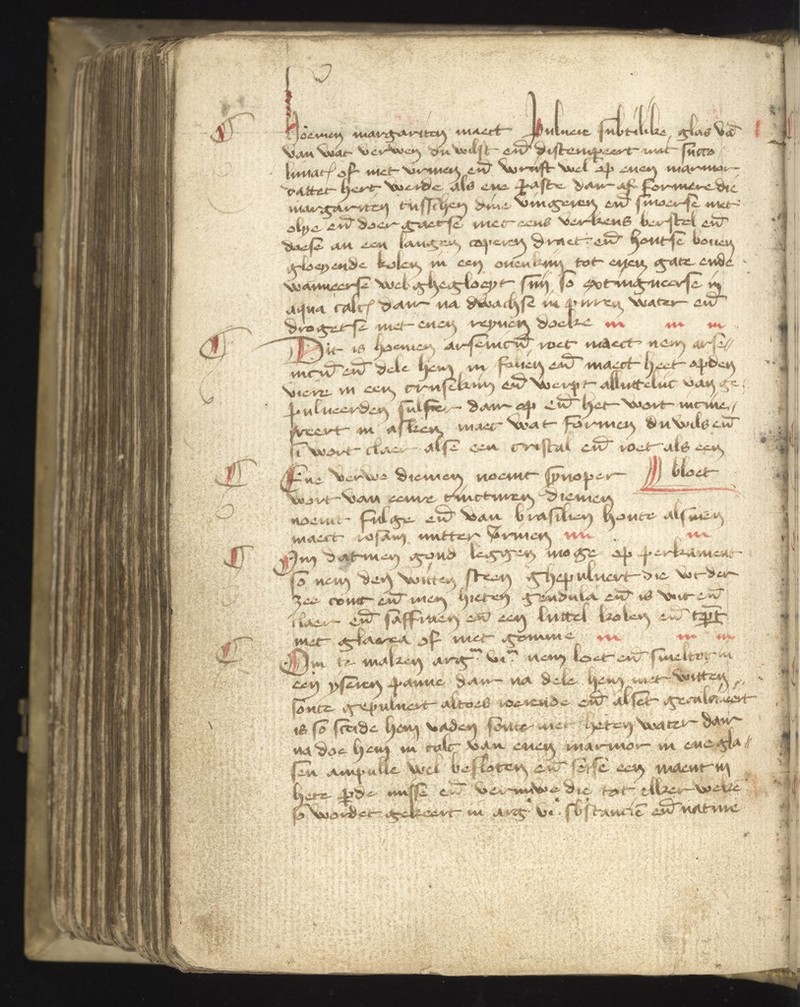 Hoemen margariten maect Pulvert subtilike glas va
van wat verwen du wilst en distempeert mit succo
limac of met vrinen en wrift wel op enen marmor
dattet hert werde als ene paste dar af formere die
margariten tusschen dine vingeren en smerse met
olye en doer gaetse met eens verkens berstel en
doese an een langen coperen draet en hontse boven
gloeyende kolen in een oveukin tot enen gate ende
wanneerse wel ghegloeyt sijn so extingueerse in
aqua calc dar na dwachse in puren water en
drogetse met enen reynen doeke
Dit is hoemen arsenicu roet maect nem arse
nicu en dele hem in foven en maect heet opden
viere in een cruselkin en werpt alluttelic van ge
pulveerden sulfer dar op en het wort incine
reert in asken maec wat formen du wils en
si wort claer alse een cristal en roet als een
Ene verwe diemen noemt synoper bloet
wort van eenre tincturen diemen
noemt fulge en van brasilien honte alsmen
maect rosam mitter vrinen
Om datmen goud leggen moge op perkament
so nem den witten steen ghepulvert die vt der
zee comt en men hieten gendula en is wit en
claer en saffraen en een luttel kolen en
met glarea of met gomme
Om te maken arg vi nem loet en smeltet in
een yseren panne dar na dele hem met witten
soute gepulvert altoes roerende en alset gecalcineert
is so sceide hem vaden soute met heten water dar
na doe hem in talc van enen marmor in ene gla
sen ampulle wel besloten en setse een maent in
hete perde misse en vernuwe die tot elker weke
so wordet gekeert in arg vi sbstancie en nature